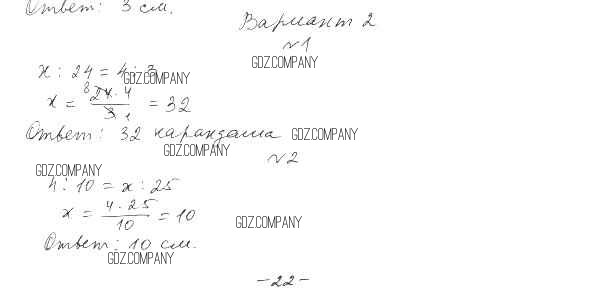 Ответ: 3 см.
Вариант 2
№1
GDZ.COMPANY
x : 24 = 4 : 3
GDZ.COMPANY
x = 24 · 4 / 3 = 32
8 1
Ответ: 32 карандаша
GDZ.COMPANY
GDZ.COMPANY
№2
GDZ.COMPANY
4 : 10 = x : 25
x = 4 · 25 / 10 = 10
GDZ.COMPANY
Ответ: 10 см.
GDZ.COMPANY
- 22 -